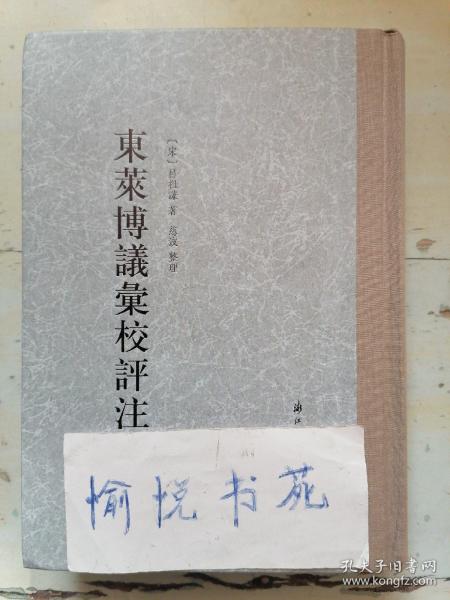 東萊博議彙校評注
〔宋〕吕祖謙 著 慈波 整理
浙江
愉悦书苑
孔夫子旧书网
www.kongfz.com